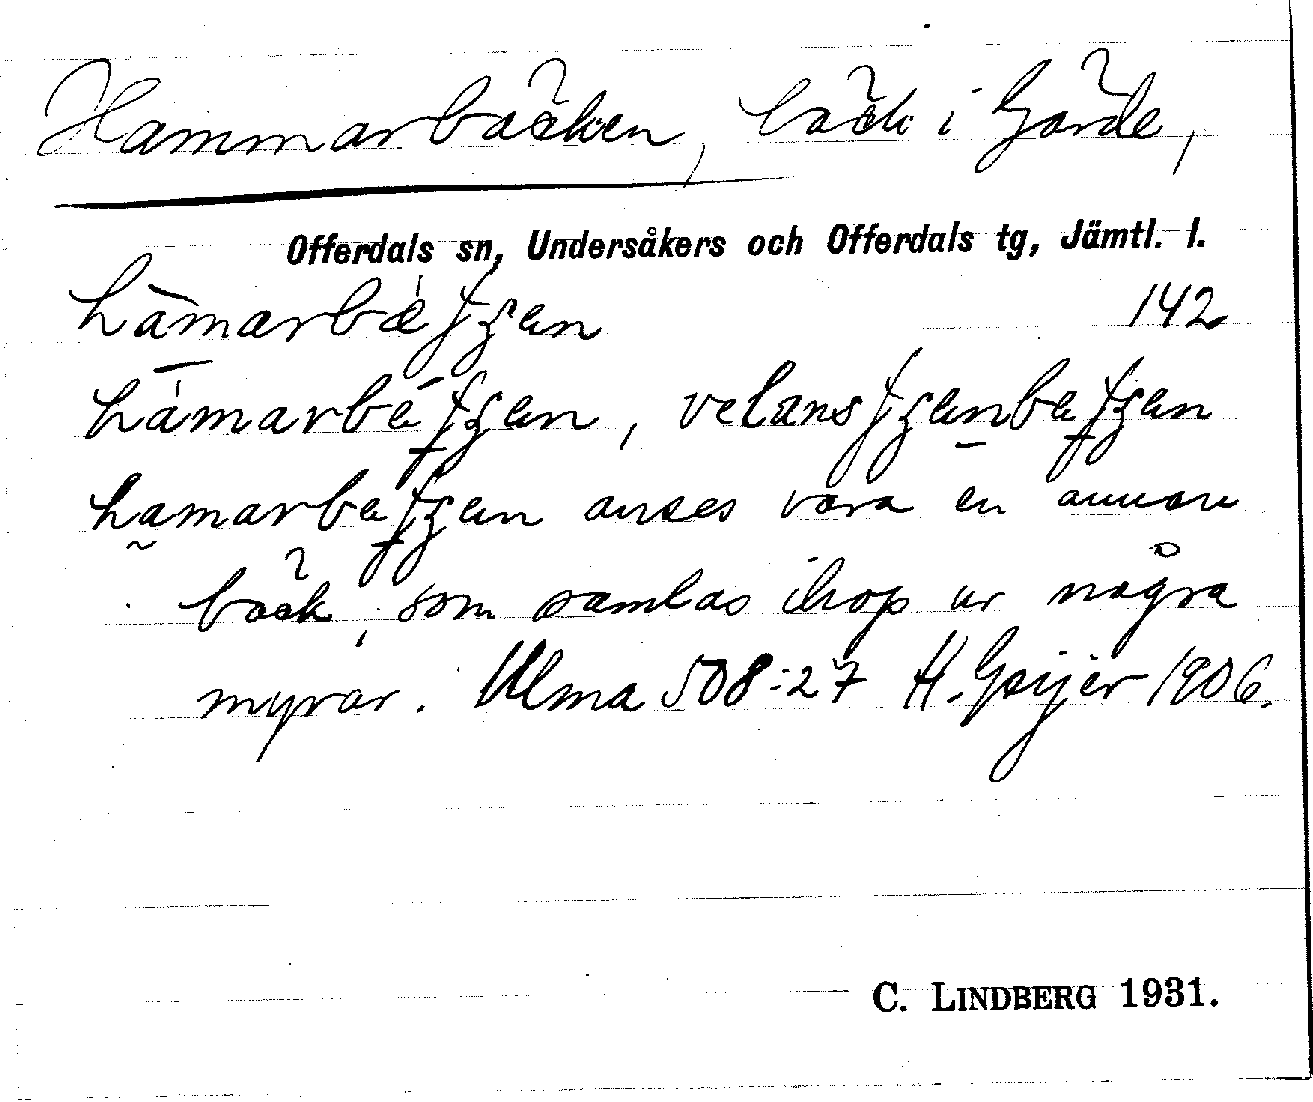 Hammarbäcken, bäck i Gärde,
Offerdals sn, Undersåkers och Offerdals tg, Jämtl. l.
142
anses vara en annan
bäck, som samlas ihop ur några
myrar. Ulma 508:27 H. Geijer 1906.
C. LINDBERG 1931.